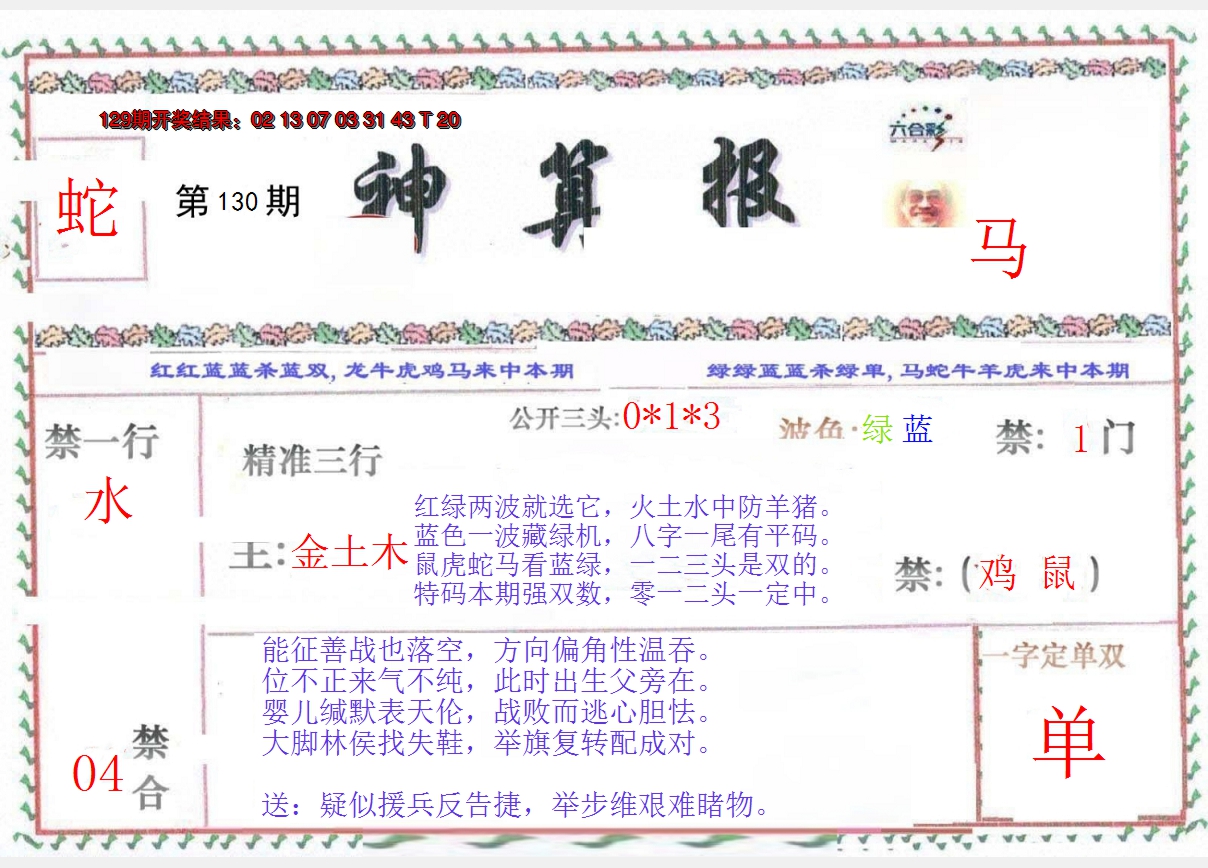 129期开奖结果：02 13 07 03 31 43 T 20
六合彩
蛇
第 130 期
神算报
马
红红蓝蓝杀蓝双，龙牛虎鸡马来中本期
绿绿蓝蓝杀绿单，马蛇牛羊虎来中本期
禁一行
水
精准三行
公开三头:0*1*3
波色·绿 蓝
禁: 1 门
红绿两波就选它，火土水中防羊猪。
蓝色一波藏绿机，八字一尾有平码。
主:金土木
鼠虎蛇马看蓝绿，一二三头是双的。
特码本期强双数，零一二头一定中。
禁:(鸡 鼠)
能征善战也落空，方向偏角性温吞。
位不正来气不纯，此时出生父旁在。
婴儿缄默表天伦，战败而逃心胆怯。
大脚林侯找失鞋，举旗复转配成对。
送：疑似援兵反告捷，举步维艰难睹物。
04
禁合
一字定单双
单